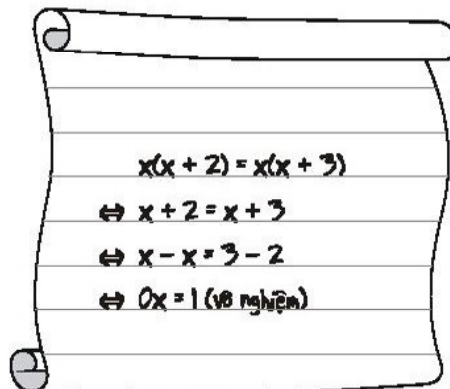 x(x + 2) = x(x + 3)
⇔ x + 2 = x + 3
⇔ x − x = 3 − 2
⇔ 0x = 1 (vô nghiệm)